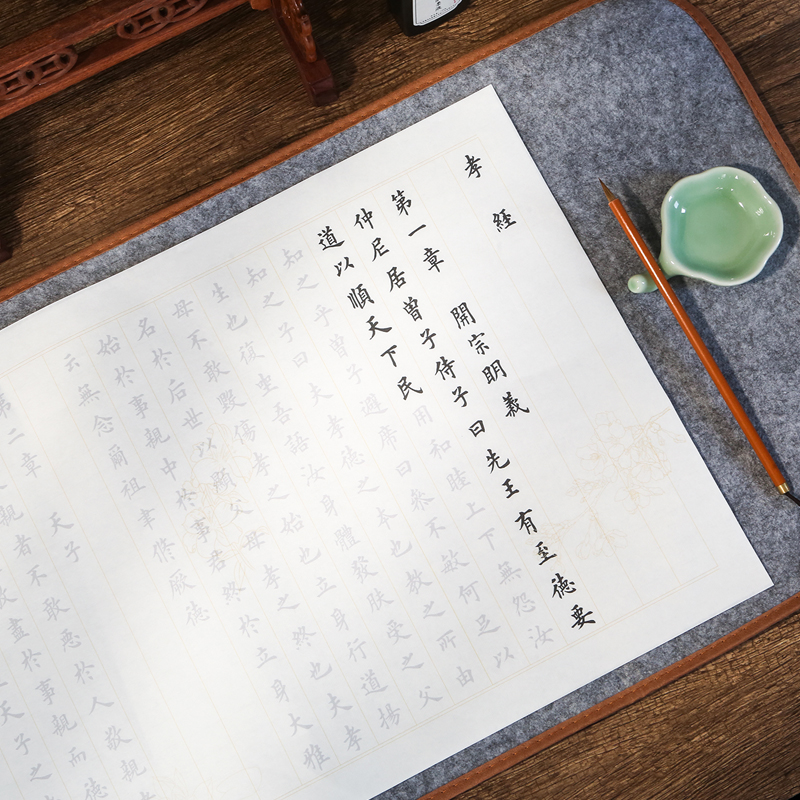 孝經
第一章 開宗明義
仲尼居曾子侍子曰先王有至德要
道以順天下民用和睦上下無怨汝
知之乎曾子避席曰參不敏何足以
知之子曰夫孝德之本也教之所由
生也復坐吾語汝身體發肤受之父
母不敢毀傷孝之始也立身行道揚
名於后世以顯父母孝之終也夫孝
始於事親中於事君終於立身大雅
云無念爾祖聿脩厥德
第二章 天子
親者不敢惡於人敬親
盡於事親而德
天子之